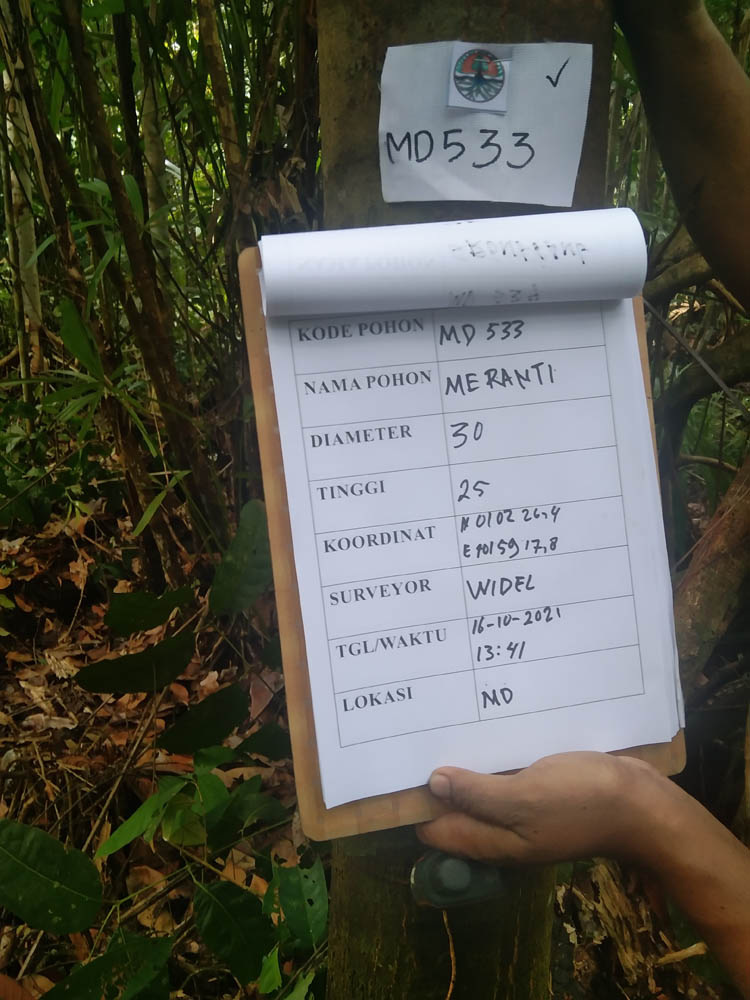 ✓
MD533
KODE POHON MD 533
NAMA POHON MERANTI
DIAMETER 30
TINGGI 25
KOORDINAT N 0102 26,4
59 17,8
SURVEYOR WIDEL
TGL/WAKTU 16-10-2021
13:41
LOKASI MD